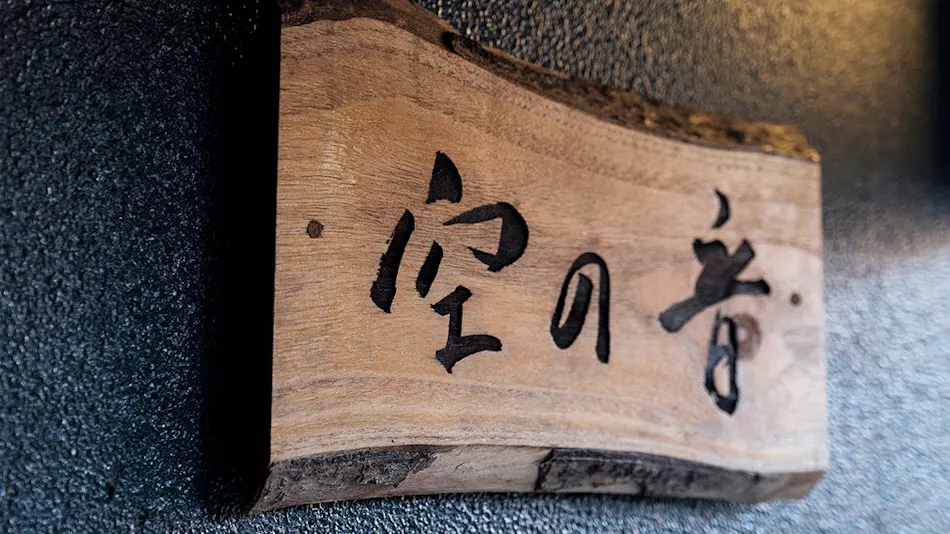 空の音